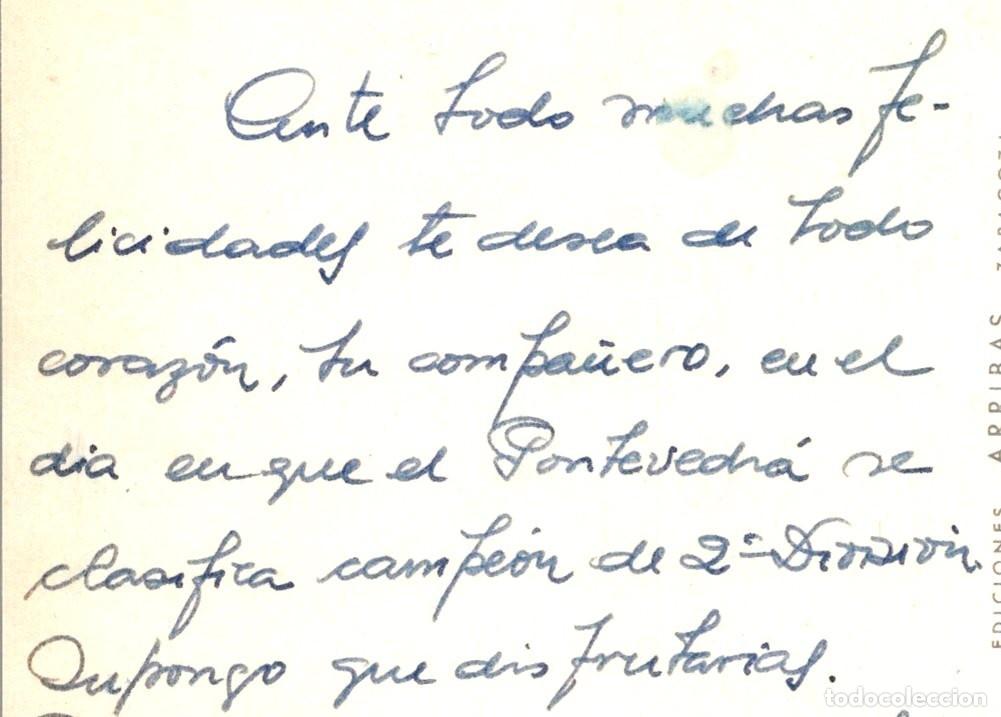 Ante todo muchas fe-
licidades te desea de todo
corazón, tu compañero, en el
dia en que el Pontevedrá se
clasifica campeón de 2ª División.
Supongo que disfrutarias.
EDICIONES ARRIBAS
todocoleccion